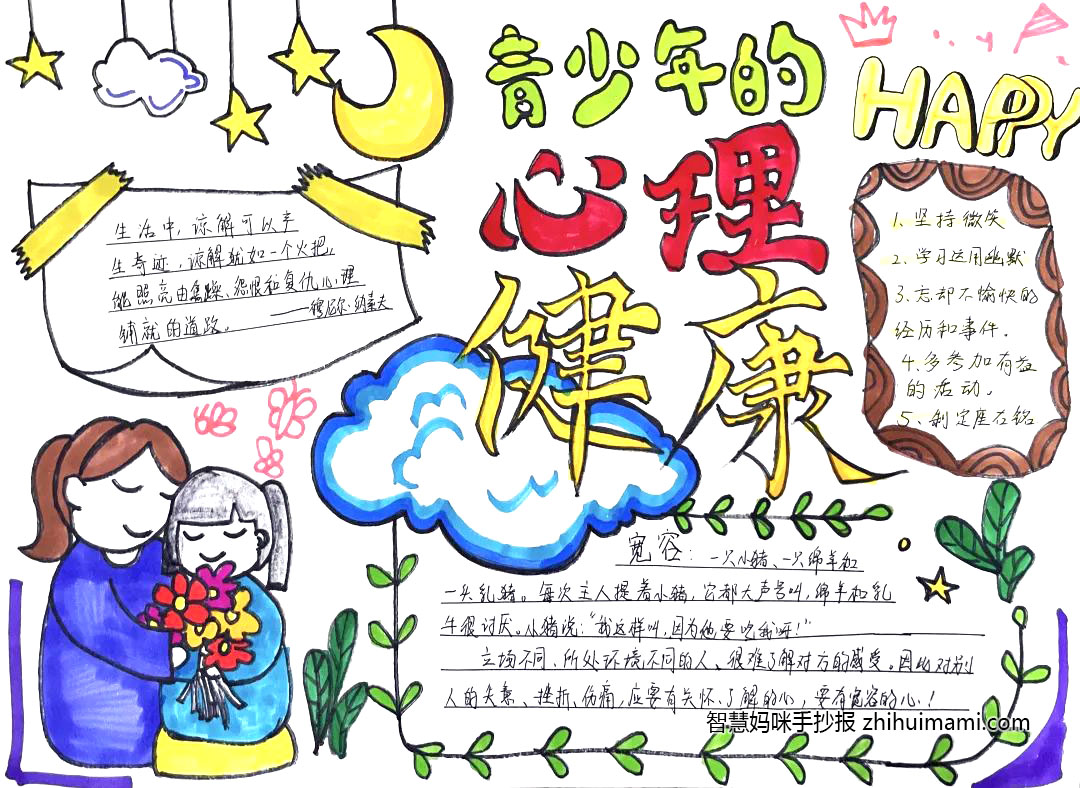 青少年的
心理
健康
HAPPY
生活中，谅解可以产
生奇迹，谅解就如一个火把，
能照亮由焦躁、怨恨和复仇心理
铺就的道路。——穆尼尔·纳素夫
1、坚持微笑
2、学习运用幽默
3、忘却不愉快的
经历和事件。
4、多参加有益
的活动。
5、制定座右铭
宽容：一只小猪、一只绵羊和
一头乳猪。每次主人提着小猪，它都大声号叫，绵羊和乳
牛很讨厌。小猪说："我这样叫，因为他要吃我呀！"
立场不同、所处环境不同的人、很难了解对方的感受。因此对别
人的失意、挫折、伤痛，应要有关怀、了解的心，要有宽容的心！
智慧妈咪手抄报 zhihuimami.com